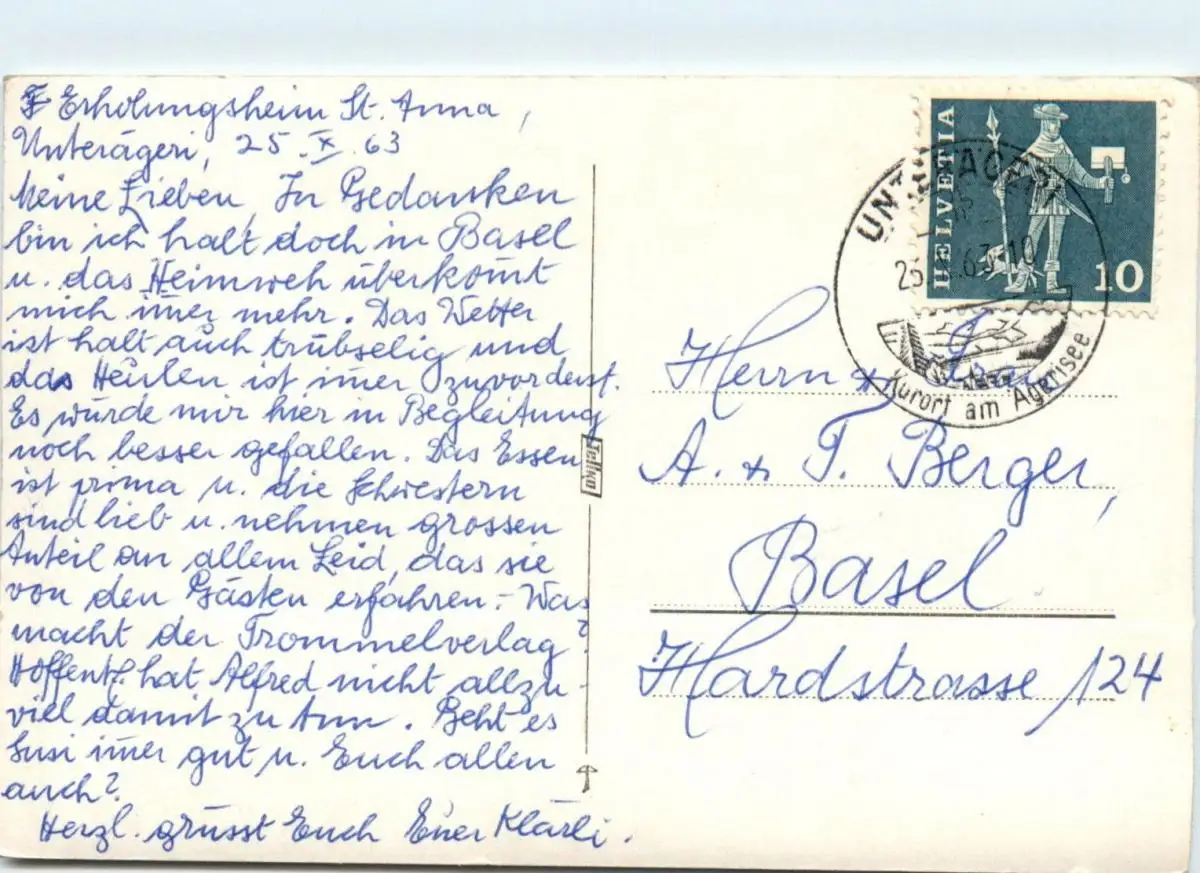 Erholungsheim St. Anna,
Unterägeri, 25. X. 63
Meine Lieben, In Gedanken
bin ich halt doch in Basel
u. das Heimweh überkom̅t
mich im̅er mehr. Das Wetter
ist halt auch trübselig und
das Heulen ist im̅er zuvorderst.
Es würde mir hier in Begleitung
noch besser gefallen. Das Essen
ist prima u. die Schwestern
sind lieb u. nehmen grossen
Anteil an allem Leid, das sie
von den Gästen erfahren. - Was
macht der Trommelverlag?
Hoffentl. hat Alfred nicht allzu-
viel damit zu tun. Geht es
Susi im̅er gut u. Euch allen
auch?
Herzl. grüsst Euch Euer Klärli.
Tellko
HELVETIA
10
UNTERÄGERI
25. X. 63-10
Kurort am Ägerisee
Herrn +
A. + F. Berger,
Basel.
Hardstrasse 124